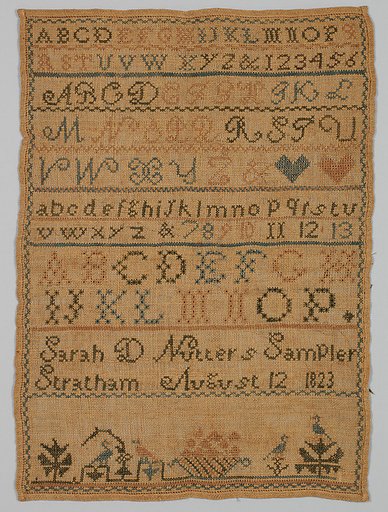 ABCDEFGHIJKLMNOPQ
RSTUVWXYZ&123456
ABCDEFGHIKL
MNOPQRSTU
VWXYZ&
abcdefghijklmnopqrstu
vwxyz &78910 11 12 13
ABCDEFGH
IJKLMNOP.
Sarah D Nutters Sampler
Stratham August 12 1823